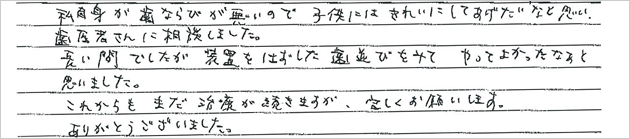 私自身が歯ならびが悪いので子供にはきれいにしてあげたいなと思い、
歯医者さんに相談しました。
長い間でしたが装置をはずした歯並びをみてやってよかったなぁと
思いました。
これからもまだ治療が続きますが、宜しくお願いします。
ありがとうございました。